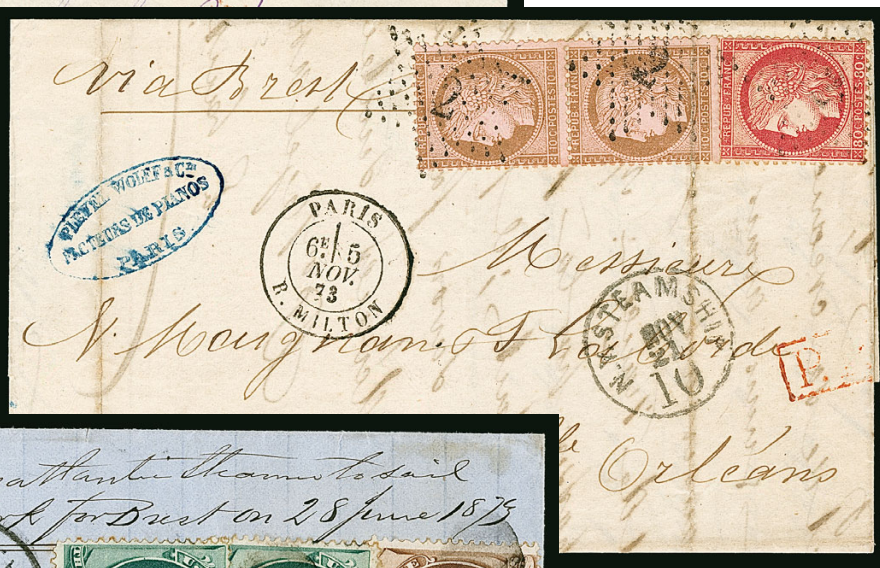 via Brest
REPUB FRANC
10C POSTES 10C
REPUB FRANC
10C POSTES 10C
REPUB FRANC
80C POSTES 80C
PLEYEL WOLFF & Cie
FACTEURS DE PIANOS
PARIS
PARIS
6E 5
NOV.
73
R. MILTON
Messieurs
N. STEAMSHIP
NOV
21
10
P.
lle Orléans
atlantic steamer to sail
for Brest on 28 June 1873